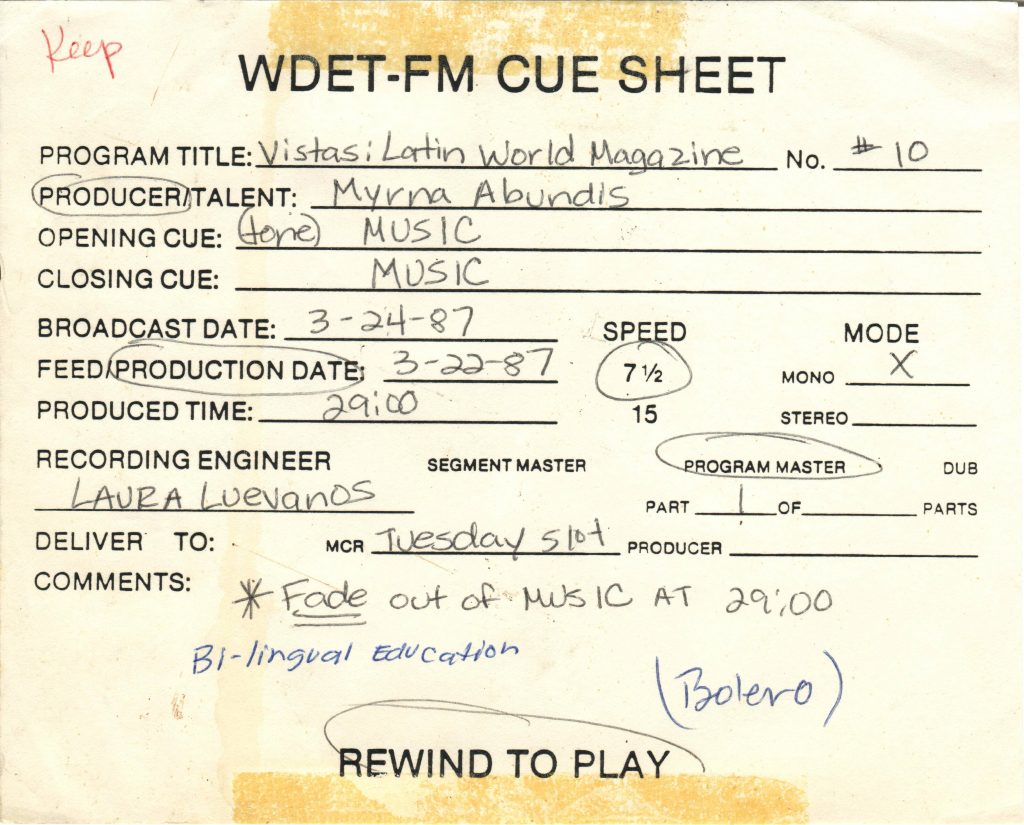 Keep
WDET-FM CUE SHEET
PROGRAM TITLE: Vistas: Latin World Magazine No. #10
PRODUCER/TALENT: Myrna Abundis
OPENING CUE: (tone) MUSIC
CLOSING CUE: MUSIC
BROADCAST DATE: 3-24-87 SPEED MODE
FEED/PRODUCTION DATE: 3-22-87 7 1/2 MONO X
PRODUCED TIME: 29:00 15 STEREO
RECORDING ENGINEER SEGMENT MASTER PROGRAM MASTER DUB
LAURA LUEVANOS PART 1 OF PARTS
DELIVER TO: MCR Tuesday slot PRODUCER
COMMENTS: * Fade out of MUSIC AT 29:00
Bi-lingual Education
(Bolero)
REWIND TO PLAY